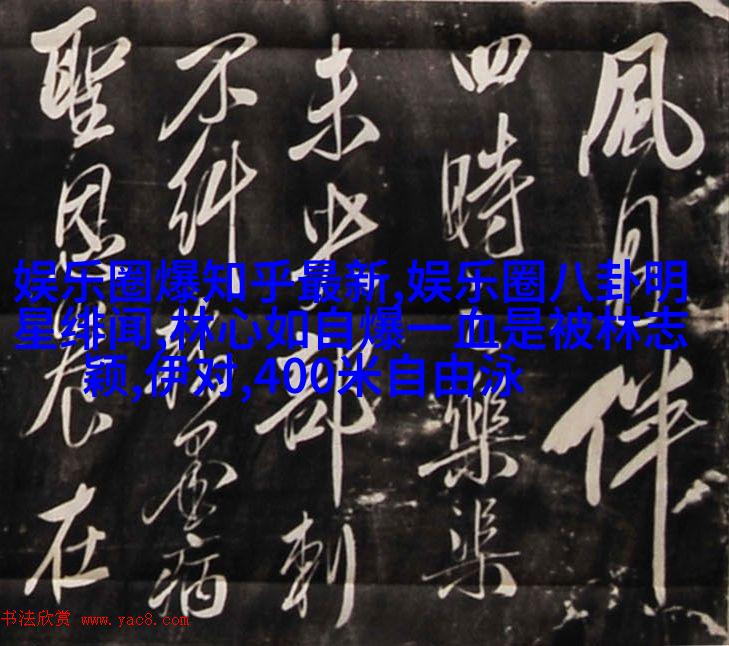 風月伴
四時樂渠
未部刺
不糾墨病
聖恩在
娱乐圈爆知乎最新,娱乐圈八卦明
星绯闻,林心如自爆一血是被林志
颖,伊对,400米自由泳
书法欣赏 www.yac8.com